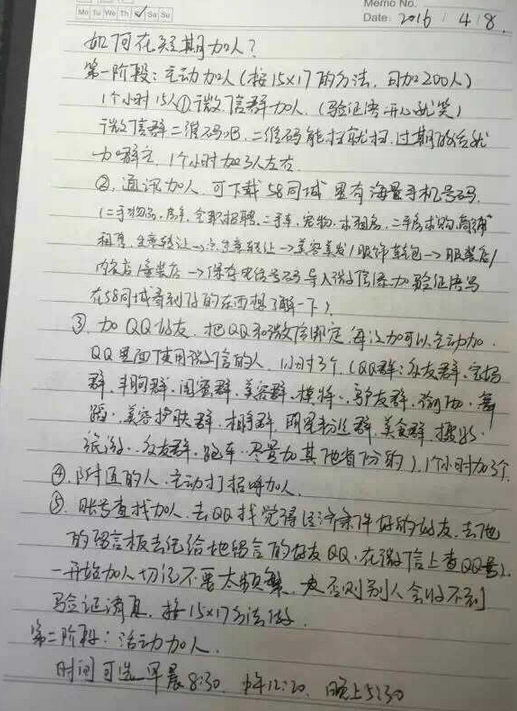 Memo No.
Mo Tu We Th Fr Sa Su
Date: 2016 / 4 / 8.
如何在短期加人?
第一阶段:主动加人(按15×17的方法,可加200人)
1个小时15人①微信群加人.(验证语开心就笑)
微信群二维码,二维码能扫就扫,过期的给就
加群主,1个小时加3人左右.
②,通讯加人.可下载58同城里有海量手机号码.
(二手物品,房产,全职招聘,二手车,宠物,求租房,二手房求购,商铺
租售,生意转让→生意转让→美容美发/服饰鞋包→服装店/
内衣店/童装店→保存电话号码导入微信添加验证语写
在58同城看到你的东西想了解一下).
③.加QQ好友,把QQ和微信绑定,每次加可以主动加.
QQ里面使用微信的人,1小时3个.(QQ群:车友群,宝妈
群,丰胸群,闺蜜群,美容群,模特,驴友群,瑜伽,舞
蹈,美容护肤群,相亲群,美食群,
车友群,跑车,尽量加其他省份的).1个小时加3个.
④.附近的人,主动打招呼加人.
⑤.账号查找加人.去QQ找觉得经济条件好的好友,去他
的留言板去记给他留言的好友QQ,在微信上查QQ号).
一开始加人切记不要太频繁,否则别人会收不到
验证消息.按15×17方法做.
第二阶段:活动加人.
时间可选早晨8:30,中午12:20,晚上5:30